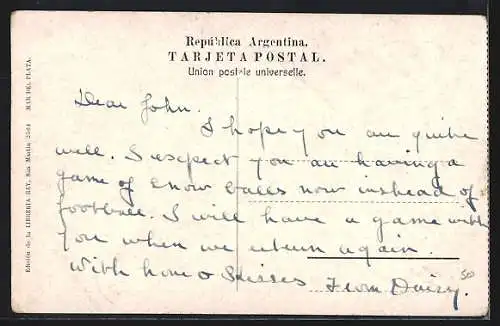 República Argentina.
TARJETA POSTAL.
Union postale universelle.
Dear John.
I hope you are quite
well. I expect you are having a
game of snow balls now instead of
football. I will have a game with
you when we return again.
With love & kisses From Daisy.
50
Edición de la LIBRERIA REY, San Martin 2564 MAR DEL PLATA.